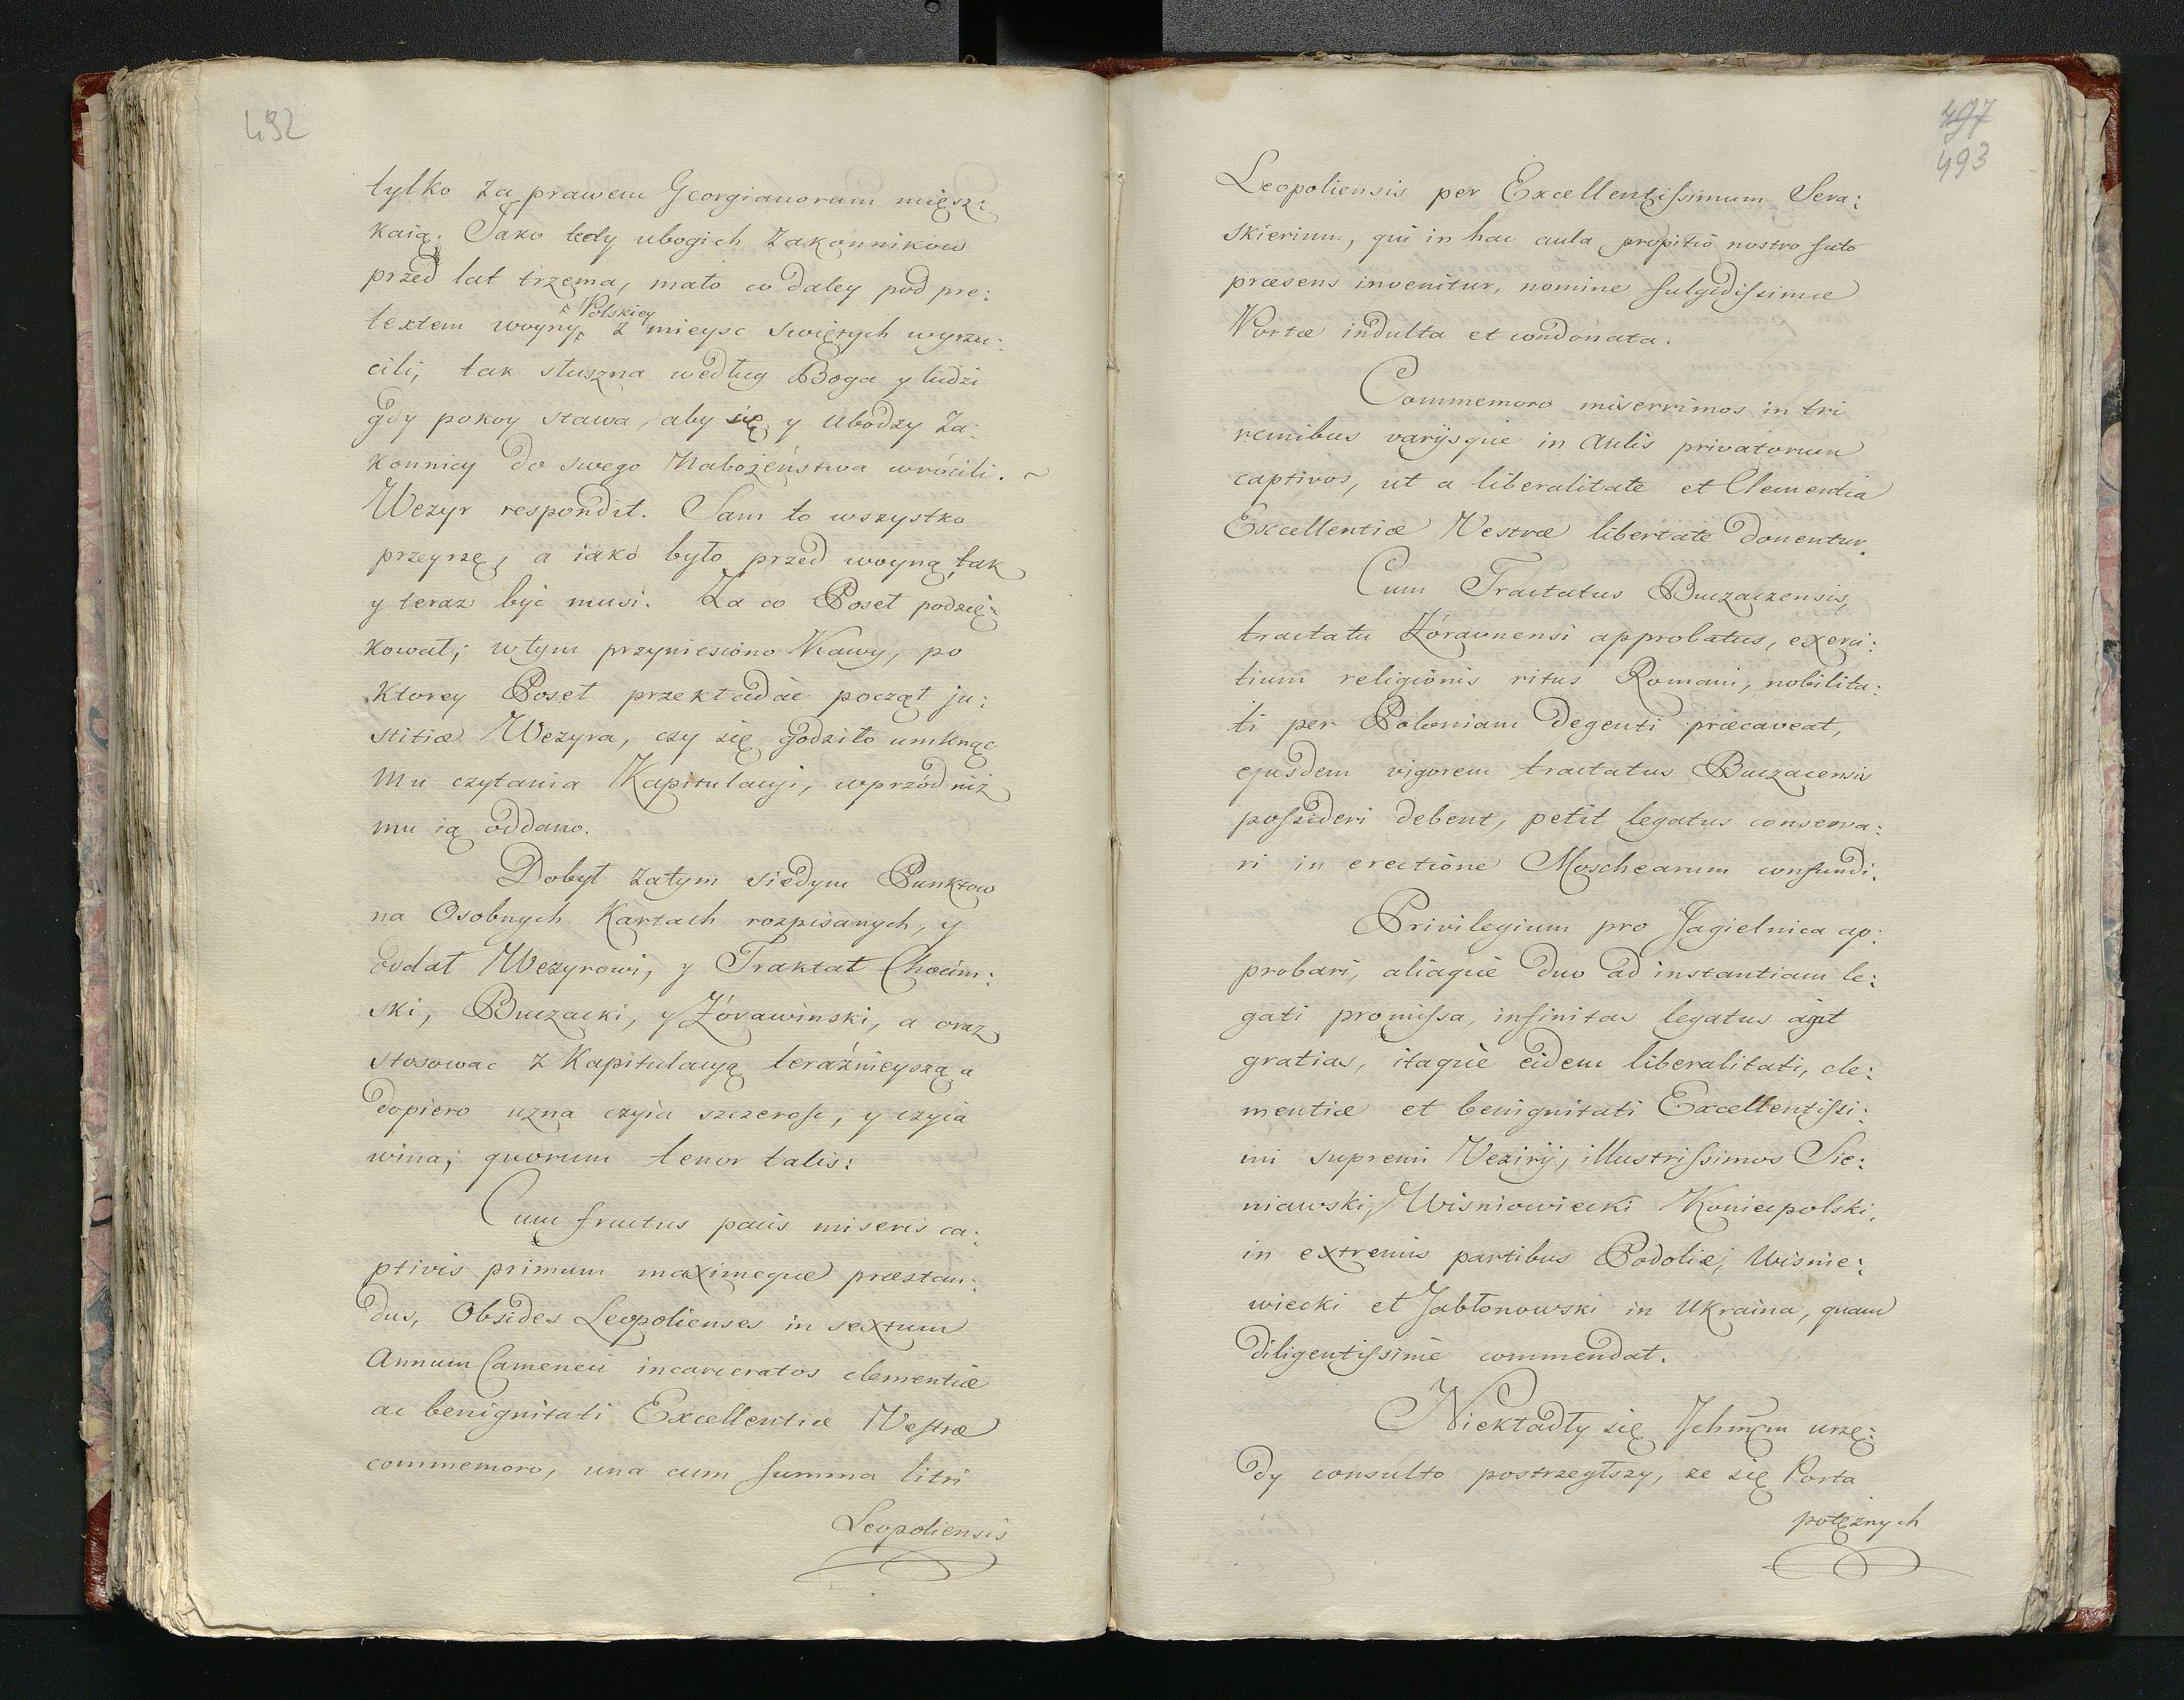 492
tylko za prawem Georgianorum miesz:
kaią. Jako tedy ubogich Zakonnikow
przed lat trzema, mało co daley pod pre:
textem woyny Polskiey z mieysc Swiętych wyrzu:
cili, tak słuszna według Boga y ludzi
gdy pokoy stawa, aby się y Ubodzy Za:
konnicy do swego Nabożeństwa wrócili. ~
Wezyr respondit. Sam to wszystko
przeyrzę, a iako było przed woyną, tak
y teraz być musi. Za co Poseł podzię:
kował; w tym przyniesiono Kawy, po
ktorey Poseł przekładać począł ju:
stitiæ Wezyra, czy się godziło umknąc
Mu czytania Kapitulacyi, wprzód niż
mu ią oddano.
Dobył zatym siedym Punktow
na Osobnych Kartach rozpisanych, y
oddał Wezyrowi, y Traktat Chocim:
ski, Buczacki, y Żórawinski, a oraz
stosowac z Kapitulacyą teraźnieyszą a
dopiero uzna czyia szczerosc, y czyia
wina; quorum tenor talis:
Cum fructus pacis miseris ca:
ptivis primum maximeque præstan:
dus, Obsides Leopolienses in sextum
Annum Cameneci incarceratos clementiæ
ac benignitati Excellentiæ Vestræ
commemoro, una cum summa litri
Leopoliensis
497
493
Leopoliensis per Excellentissimum Sera:
skierium, qui in hac aula propitio nostro fato
præsens invenitur, nomine fulgidissimæ
Portæ indulta et condonata.
Commemoro miserrimos in tri
remibus varijsque in Aulis privatorum
captivos, ut a liberalitate et Clementia
Excellentiæ Vestræ libertate donentur.
Cum Tractatus Buczaczensis,
tractatu Żóravnensi approbatus, exerci:
tium religionis ritus Romani, nobilita:
ti per Poloniam degenti præcaveat,
ejusdem vigorem tractatus Buczacensis
possideri debent, petit legatus conserva:
ri in erectione Moschearum confundi.
Privilegium pro Jagielnica ap:
probari, aliaque duo ad instantiam le:
gati promissa, infinitas legatus agit
gratias, itaque eidem liberalitati, cle:
mentiæ et benignitati Excellentissi:
mi supremi Vezirij, illustrissimos Sie:
niawski, Wisniowiecki Koniecpolski,
in extremis partibus Podoliæ, Wisnie:
wiecki et Jabłonowski in Ukraina, quam
diligentissime commendat.
Niekładły się Jchmcm urzę:
dy consulto postrzegłszy, ze się Porta
potężnych